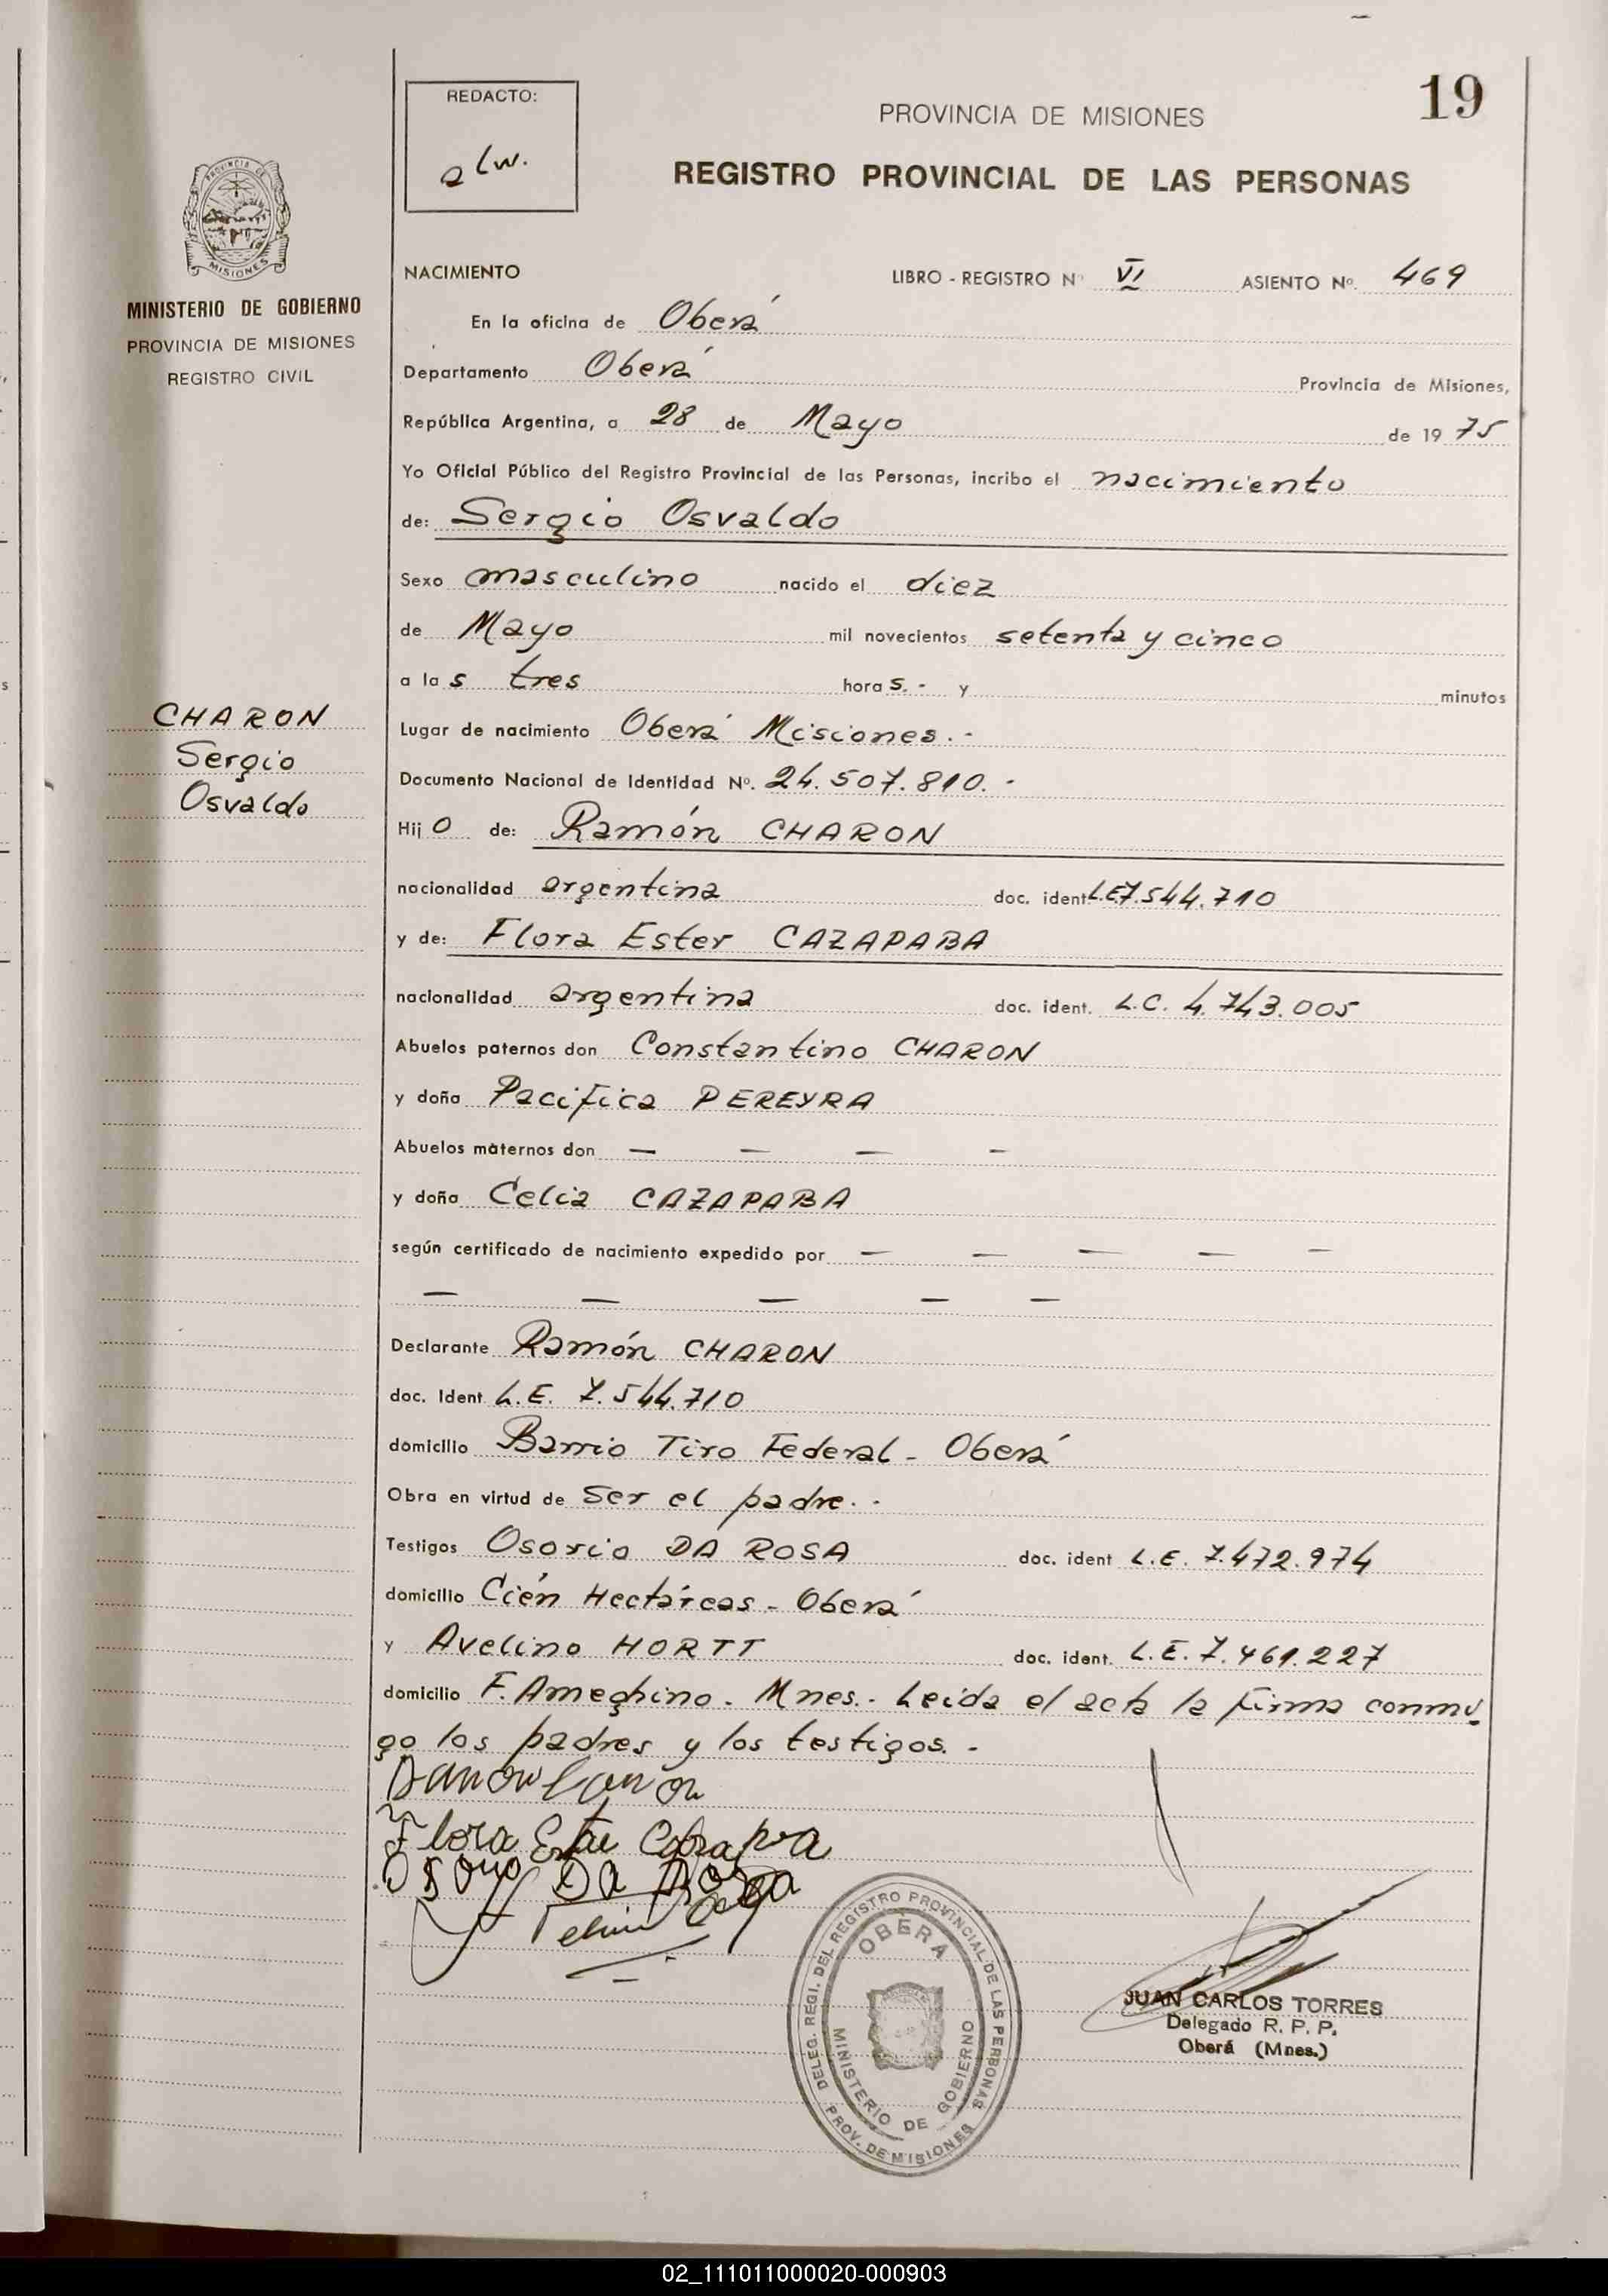 19
REDACTO:
alw.
PROVINCIA DE MISIONES
REGISTRO PROVINCIAL DE LAS PERSONAS
PROVINCIA DE
MISIONES
MINISTERIO DE GOBIERNO
PROVINCIA DE MISIONES
REGISTRO CIVIL
CHARON
Sergio
Osvaldo
NACIMIENTO LIBRO - REGISTRO Nº VI ASIENTO Nº. 469
En la oficina de Oberá
Departamento Oberá Provincia de Misiones,
República Argentina, a 28 de Mayo de 19 75
Yo Oficial Público del Registro Provincial de las Personas, incribo el nacimiento
de: Sergio Osvaldo
Sexo masculino nacido el diez
de Mayo mil novecientos setenta y cinco
a la s tres hora s.- y minutos
Lugar de nacimiento Oberá Misiones.-
Documento Nacional de Identidad Nº. 24.507.810.-
Hij o de: Ramón CHARON
nacionalidad argentina doc. ident L.E 7.544.710
y de: Flora Ester CAZAPABA
nacionalidad argentina doc. ident. L.C. 4.743.005
Abuelos paternos don Constantino CHARON
y doña Pacifica PEREYRA
Abuelos maternos don — — — —
y doña Celia CAZAPABA
según certificado de nacimiento expedido por — — — — —
— — — — —
Declarante Ramón CHARON
doc. Ident L.E. 7.544.710
domicilio Barrio Tiro Federal - Oberá
Obra en virtud de ser el padre.-
Testigos Osorio DA ROSA doc. ident L.E. 7.472.974
domicilio Cién Hectáreas - Oberá
y Avelino HORTT doc. ident. L.E. 7.461.227
domicilio F. Ameghino - Mnes.- Leída el acta la firma conmi
go los padres y los testigos.-
Flora Ester
Osorio DA ROSA
DELEG. REGI. DEL REGISTRO PROVINCIAL DE LAS PERSONAS
OBERA
MINISTERIO DE GOBIERNO
PROV. DE MISIONES
JUAN CARLOS TORRES
Delegado R. P. P.
Oberá (Mnes.)
02_111011000020-000903